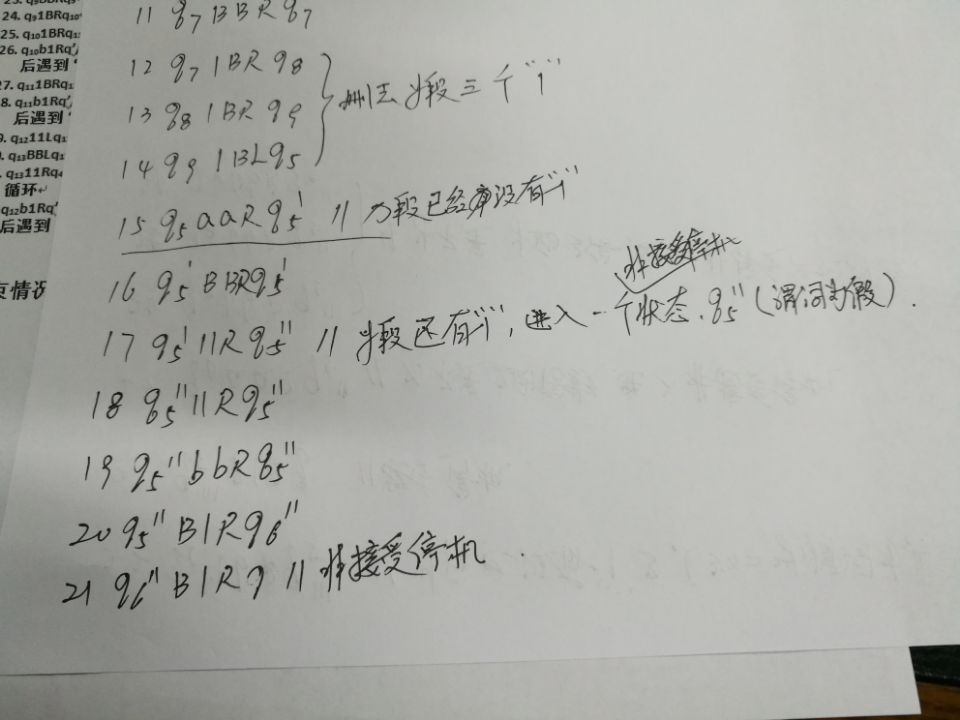 24. q₉1BRq₁₀
25. q₁₀1BRq₁
26. q₁₀b1Rq'
后遇到"
27. q₁₁1BRq₁
8. q₁₁b1Rq'
后遇到"
q₁₂11Lq₁
q₁₃BBLq₁
q₁₃11Rq₄
循环
q₁₂b1Rq'
后遇到
束情况
11 q₇BBRq₇
12 q₇1BRq₈
13 q₈1BRq₉
14 q₉1BLq₅
删去 y段三个"1"
15 q₅aaRq₅' // 段已经没有"1"
16 q₅'BBRq₅'
非接受停机
17 q₅'11Rq₅'' // y段还有"1", 进入一个状态, q₅'' (谓词为假).
18 q₅''11Rq₅''
19 q₅''bbRq₅''
20 q₅''B1Rq₆''
21 q₆''B1Rq // 非接受停机